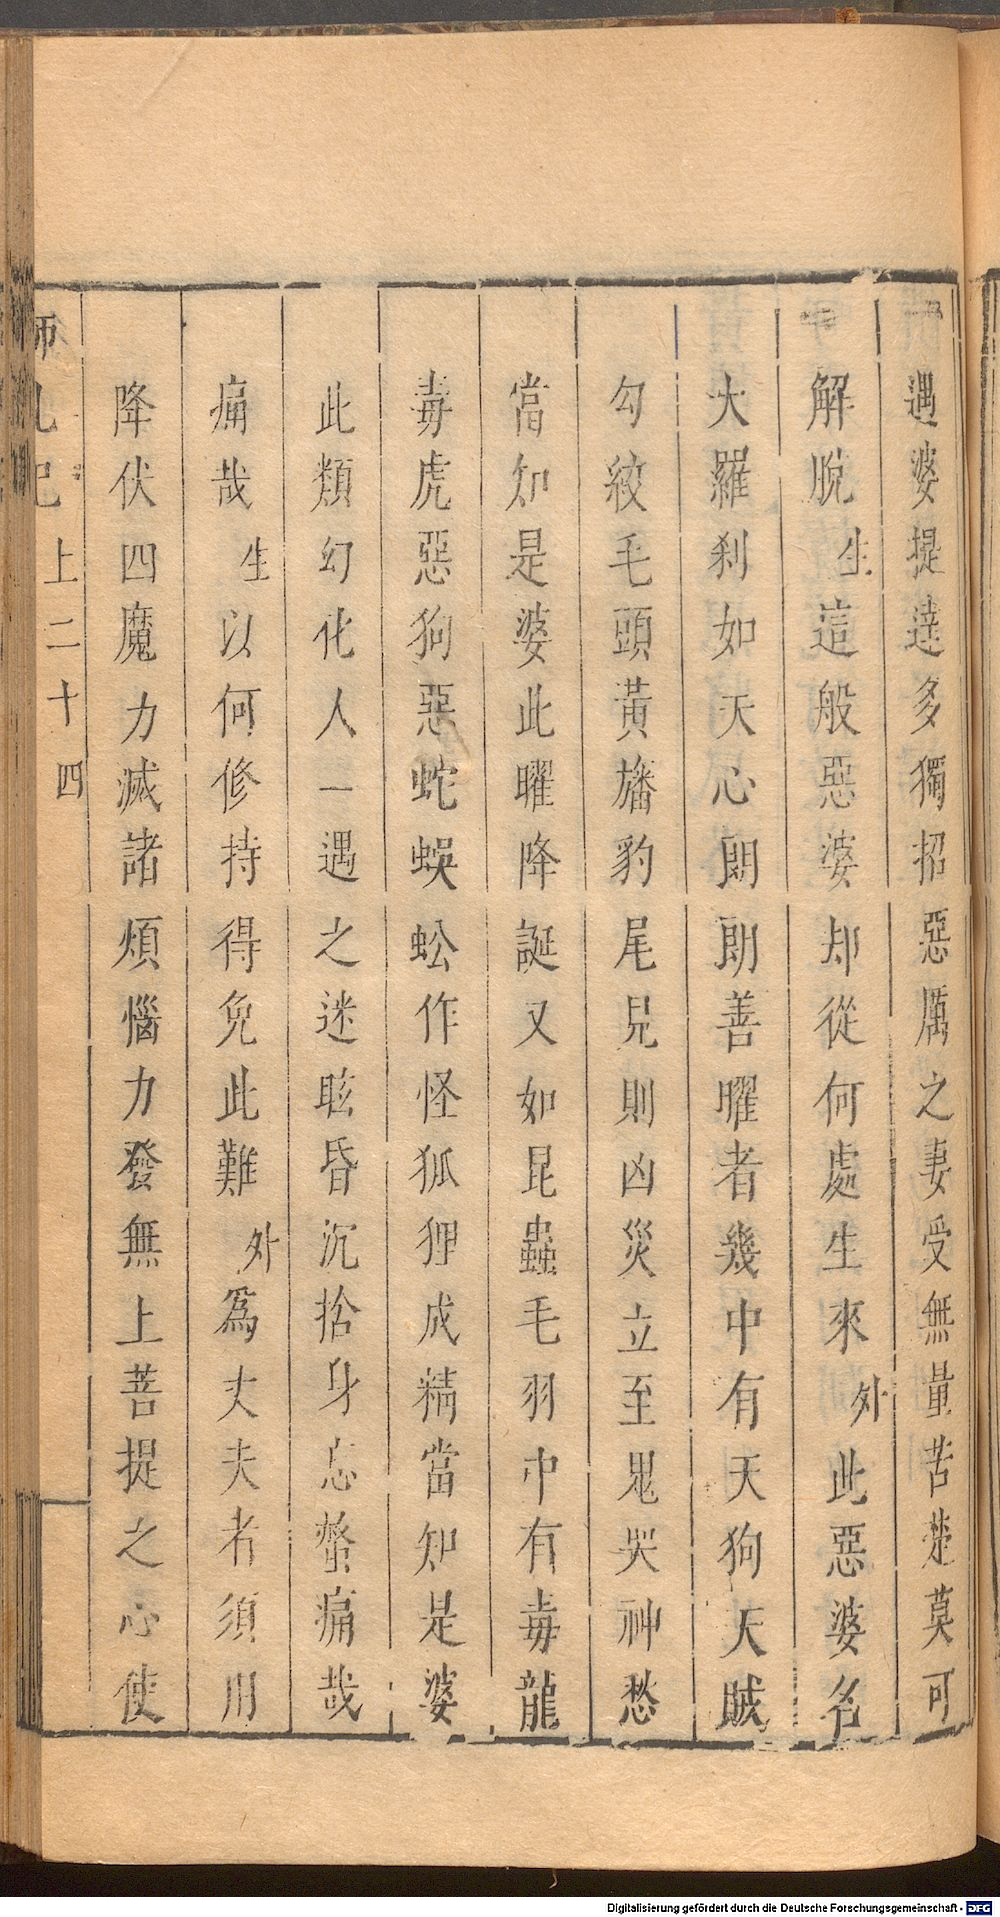 遇婆提達多獨招惡厲之妻受無量苦楚莫可
解脫生這般惡婆却從何處生來外此惡婆名
大羅刹如天心朗朗善曜者幾中有天狗天賊
勾絞毛頭黃旛豹尾見則凶災立至鬼哭神愁
當知是婆此曜降誕又如昆蟲毛羽中有毒龍
毒虎惡狗惡蛇蜈蚣作怪狐狸成精當知是婆
此類幻化人一遇之迷眩昏沉捨身忘螫痛哉
痛哉生以何修持得免此難外為丈夫者須用
降伏四魔力滅諸煩惱力發無上菩提之心使
師 記 上二十四
Digitalisierung gefördert durch die Deutsche Forschungsgemeinschaft - DFG